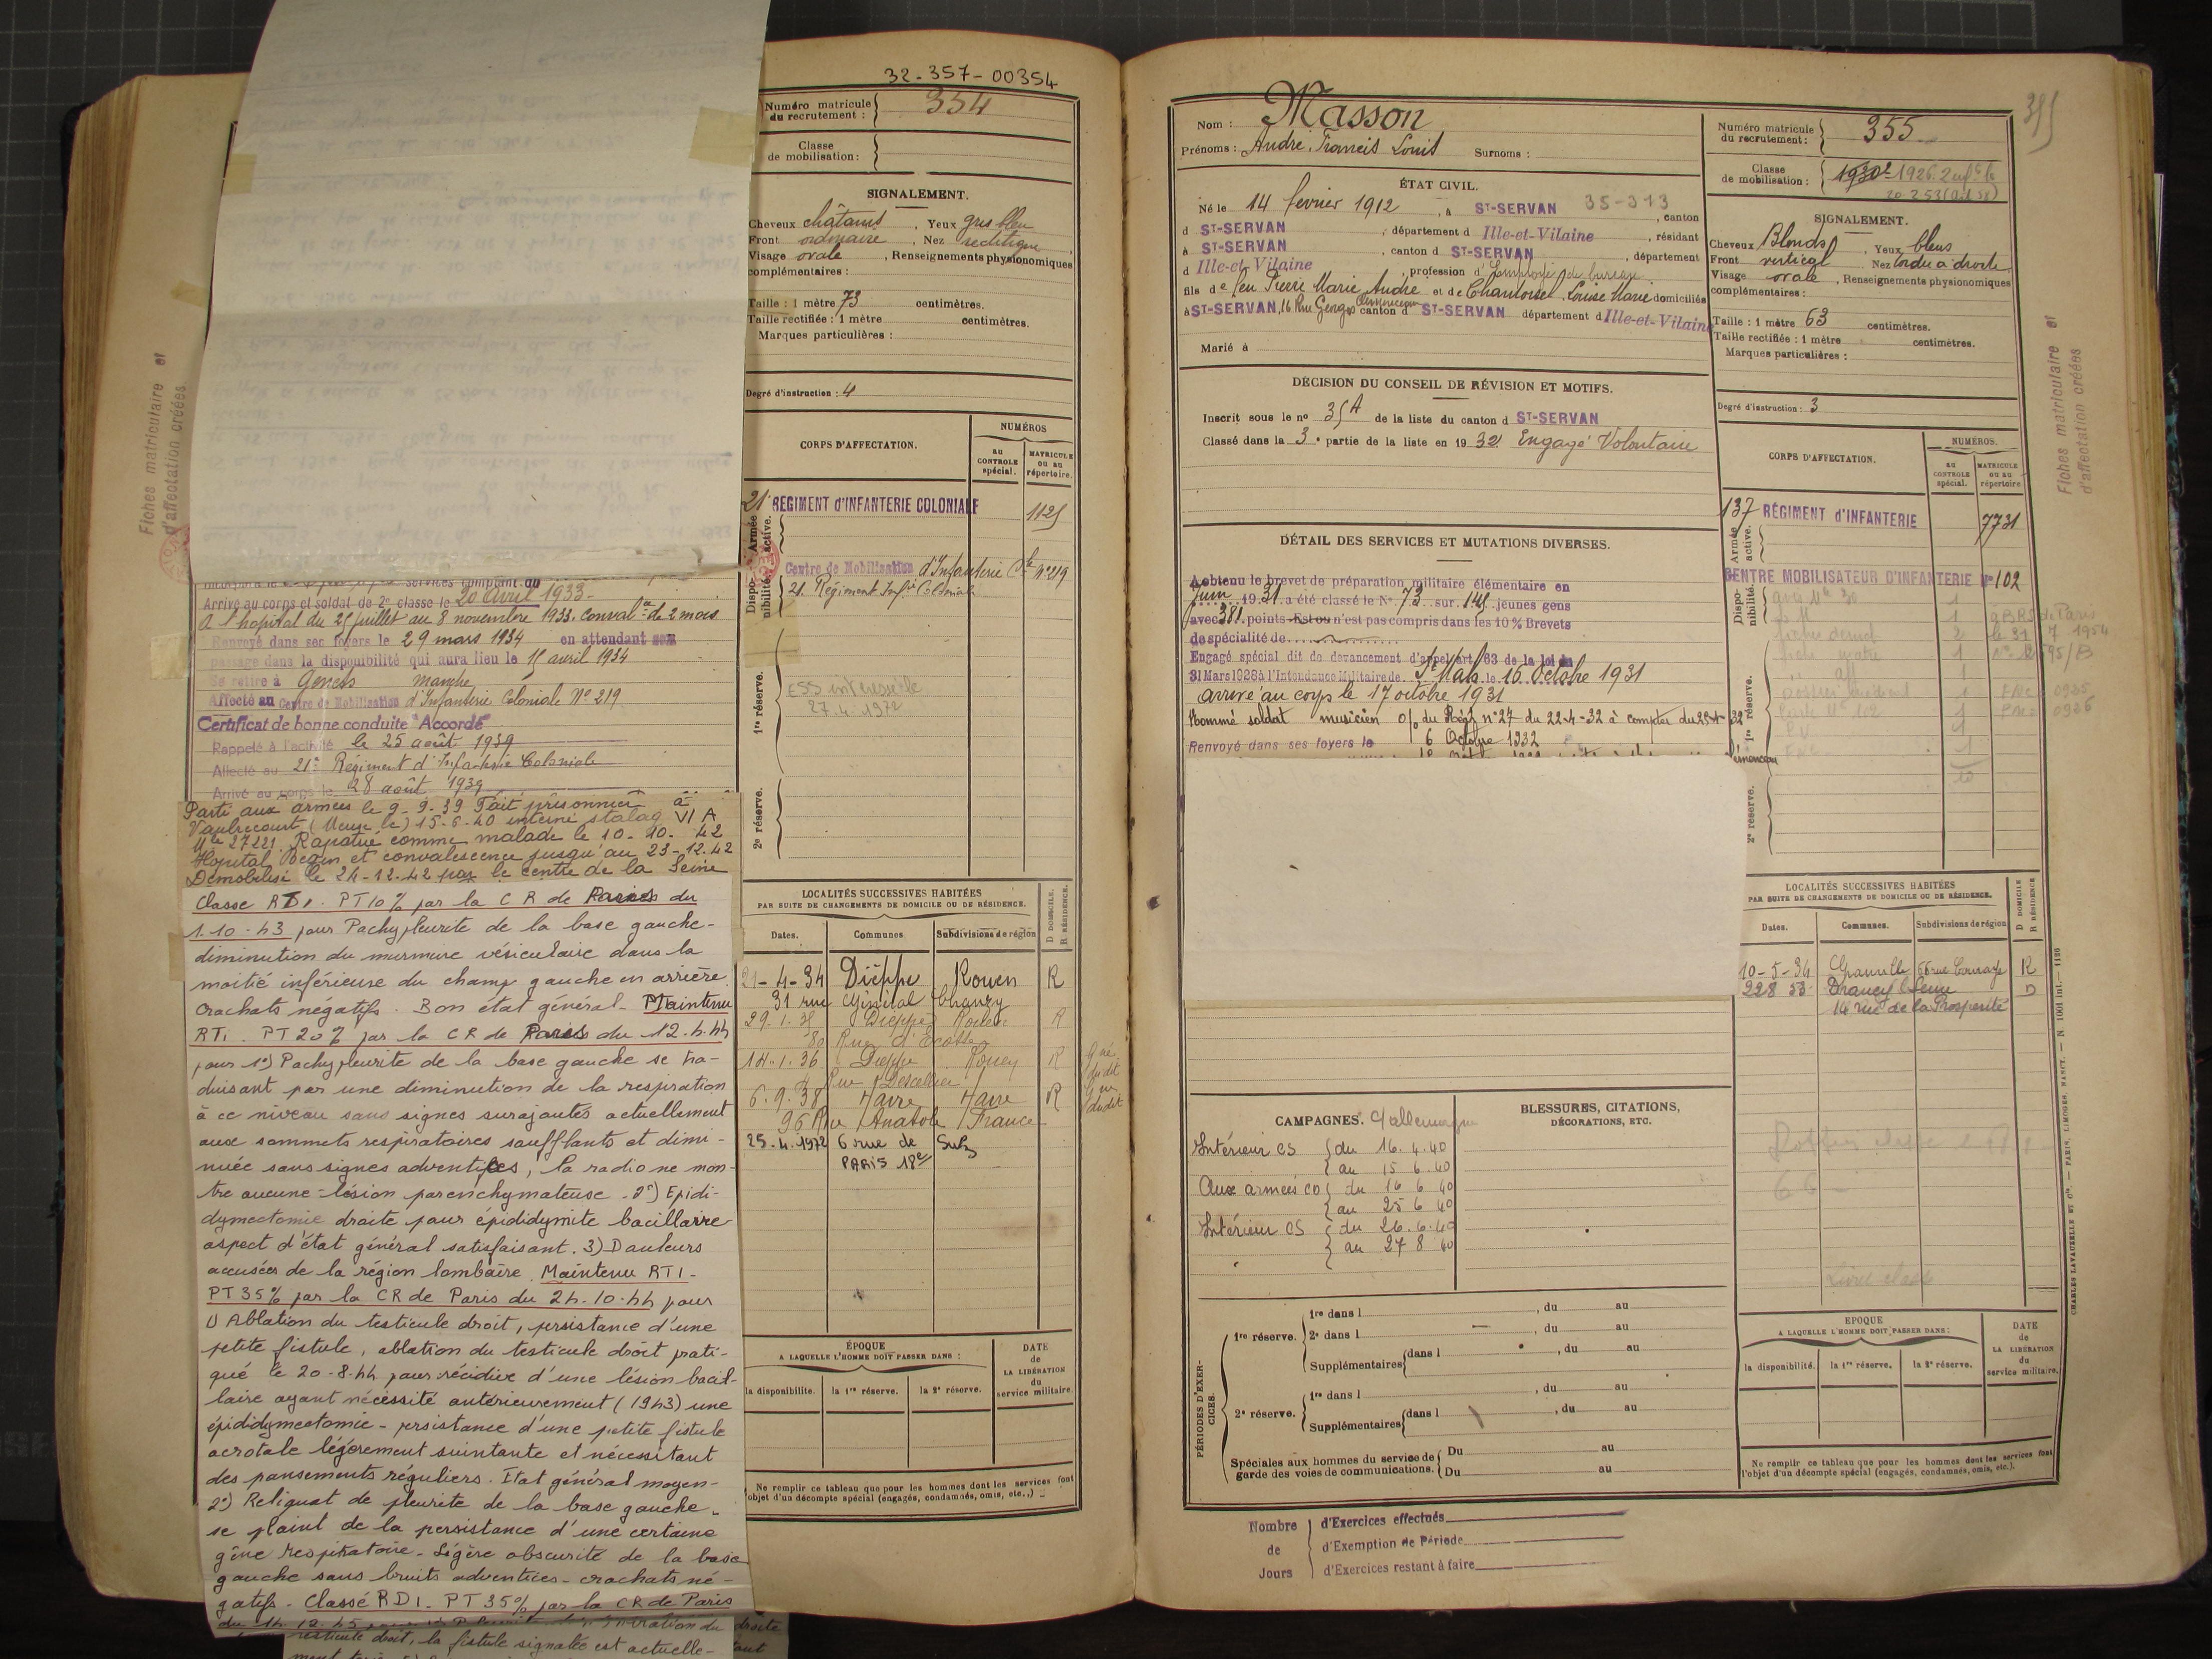 32-357-00354
Numéro matricule du recrutement : 354
Classe de mobilisation :
SIGNALEMENT.
Cheveux châtains, Yeux gris bleu
Front ordinaire, Nez rectiligne
Visage ovale, Renseignements physionomiques
complémentaires :
Taille : 1 mètre 73 centimètres.
Taille rectifiée : 1 mètre centimètres.
Marques particulières :
Degré d'instruction : 4
CORPS D'AFFECTATION.
NUMÉROS
AU CONTROLE spécial.
MATRICULE OU AU répertoire.
Armée active.
21e RÉGIMENT d'INFANTERIE COLONIALE 1125
Disponibilité.
Centre de Mobilisation d'Infanterie Cle N° 219
21. Régiment Infie Coloniale
1re réserve.
27.4.1972
2e réserve.
Fiches matriculaire et
d'affectation créées
services comptant du
Arrivé au corps et soldat de 2e classe le 20 avril 1933
A l'hôpital du 25 juillet au 8 novembre 1933. conval ce de 2 mois
Renvoyé dans ses foyers le 29 mars 1934 en attendant son
passage dans la disponibilité qui aura lieu le 15 avril 1934
Se retire à Genets Manche
Affecté au Centre de Mobilisation d'Infanterie Coloniale N° 219
Certificat de bonne conduite "Accordé"
Rappelé à l'activité le 25 août 1939
Affecté au 21e Régiment d'Infanterie Coloniale
Arrivé au corps le 28 août 1939
Parti aux armées le 9.9.39 Fait prisonnier à
Vaubecourt (Meuse) le 15-6-40 interné stalag VI A
Mle 27221. Rapatrié comme malade le 10-10-42
Hôpital Begin et convalescence jusqu'au 23-12.42
Démobilisé le 24-12.42 par le centre de la Seine
Classé RD1. PT10% par la C R de Paris du
1.10.43 pour Pachypleurite de la base gauche-
diminution du murmure vésiculaire dans la
moitié inférieure du champ gauche en arrière
crachats négatifs. Bon état général- Maintenu
RT1. PT 20% par la CR de Paris du 12.4.44
pour 1°) Pachypleurite de la base gauche se tra-
duisant par une diminution de la respiration
à ce niveau sans signes surajoutés actuellement
aux sommets respiratoires soufflants et dimi-
nuée sans signes adventices, la radio ne mon-
tre aucune lésion parenchymateuse. 2°) Epidi-
dymectomie droite pour épididymite bacillaire
aspect d'état général satisfaisant. 3) Douleurs
accusées de la région lombaire. Maintenu RT1-
PT 35% par la CR de Paris du 24.10.44 pour
1) Ablation du testicule droit, persistance d'une
petite fistule, ablation du testicule droit prati-
qué le 20-8.44 pour récidive d'une lésion bacil-
laire ayant nécessité antérieurement (1943) une
épididymectomie - persistance d'une petite fistule
scrotale légèrement suintante et nécessitant
des pansements réguliers. Etat général moyen-
2°) Reliquat de pleurite de la base gauche.
se plaint de la persistance d'une certaine
gêne respiratoire - Légère obscurité de la base
gauche sans bruits adventices - crachats né-
gatifs - Classé RD1. PT 35% par la CR de Paris
testicule droit, la fistule signalée est actuelle-
LOCALITÉS SUCCESSIVES HABITÉES
PAR SUITE DE CHANGEMENTS DE DOMICILE OU DE RÉSIDENCE.
D DOMICILE. R RÉSIDENCE.
Dates. Communes. Subdivisions de région
21-4-34 Dieppe Rouen R
31 rue Général Chanzy
29.1.35 Dieppe Rouen R
Rue d'Ecosse
14.1.36 Dieppe Rouen R
4 Rue Descelliers
6.9.38 Havre Havre R
96 Rue Anatole France
25.4.1972 6 rue de Suez
PARIS 18e
ÉPOQUE
A LAQUELLE L'HOMME DOIT PASSER DANS :
la disponibilité. la 1re réserve. la 2e réserve.
DATE de LA LIBÉRATION du service militaire.
Ne remplir ce tableau que pour les hommes dont les services font
l'objet d'un décompte spécial (engagés, condamnés, omis, etc.,)
355
Nom : Masson
Prénoms : André, Francis Louis Surnoms :
Numéro matricule du recrutement : 355
Classe de mobilisation : 1930
ÉTAT CIVIL.
Né le 14 février 1912, à ST-SERVAN 35-313, canton
d ST-SERVAN, département d Ille-et-Vilaine, résidant
à ST-SERVAN, canton d ST-SERVAN, département
d Ille-et-Vilaine, profession d'Employé de bureau
fils de feu Pierre Marie André et de Chantoisel, Louise Marie domiciliés
à ST-SERVAN, 16 Rue Georges Clemenceau canton d ST-SERVAN département d Ille-et-Vilaine
Marié à
SIGNALEMENT.
Cheveux Blonds, Yeux bleus
Front vertical Nez tordu à droite
Visage ovale, Renseignements physionomiques
complémentaires :
Taille : 1 mètre 63 centimètres.
Taille rectifiée : 1 mètre centimètres.
Marques particulières :
Degré d'instruction : 3
DÉCISION DU CONSEIL DE RÉVISION ET MOTIFS.
Inscrit sous le n° 35A de la liste du canton d ST-SERVAN
Classé dans la 3e partie de la liste en 1932 Engagé Volontaire
DÉTAIL DES SERVICES ET MUTATIONS DIVERSES.
A obtenu le brevet de préparation militaire élémentaire en
Juin 1931 a été classé le N° 73 sur 145 jeunes gens
avec 381 points Est ou n'est pas compris dans les 10% Brevets
de spécialité de
Engagé spécial dit de devancement d'appel art. 63 de la loi du
31 Mars 1928 à l'Intendance Militaire de St Malo le 16 Octobre 1931
arrivé au corps le 17 octobre 1931
Nommé soldat musicien o/o du Régt n°27 du 22-4-32 à compter du
Renvoyé dans ses foyers le 6 Octobre 1932
CORPS D'AFFECTATION.
NUMÉROS.
AU CONTROLE spécial.
MATRICULE OU AU répertoire
Armée active.
137 RÉGIMENT d'INFANTERIE 7731
Disponibilité.
CENTRE MOBILISATEUR D'INFANTERIE N° 102
1re réserve.
2e réserve.
Fiches matriculaire et
d'affectation créées
LOCALITÉS SUCCESSIVES HABITÉES
PAR SUITE DE CHANGEMENTS DE DOMICILE OU DE RÉSIDENCE.
D DOMICILE R RÉSIDENCE.
Dates. Communes. Subdivisions de région
10-5-34 Granville 66 rue Couraye R
228 53 Drancy Seine D
14 rue de la Prosperité
CAMPAGNES. C/allemagne
BLESSURES, CITATIONS,
DÉCORATIONS, ETC.
Intérieur CS du 16.4.40
au 15 6.40
Aux armées CD du 16 6 40
au 25 6 40
Intérieur CS du 26.6.40
au 27 8 40
PÉRIODES D'EXERCICES.
1re réserve.
1re dans l , du au
2e dans l , du au
Supplémentaires dans l , du au
2e réserve.
1re dans l , du au
Supplémentaires dans l , du au
Spéciales aux hommes du service de garde des voies de communications. Du au
Du au
ÉPOQUE
A LAQUELLE L'HOMME DOIT PASSER DANS :
la disponibilité. la 1re réserve. la 2e réserve.
DATE de LA LIBÉRATION du service militaire.
Ne remplir ce tableau que pour les hommes dont les services font
l'objet d'un décompte spécial (engagés, condamnés, omis, etc.).
Nombre de Jours
d'Exercices effectués
d'Exemption de Période
d'Exercices restant à faire
CHARLES LAVAUZELLE ET Cie. — PARIS, LIMOGES, NANCY.